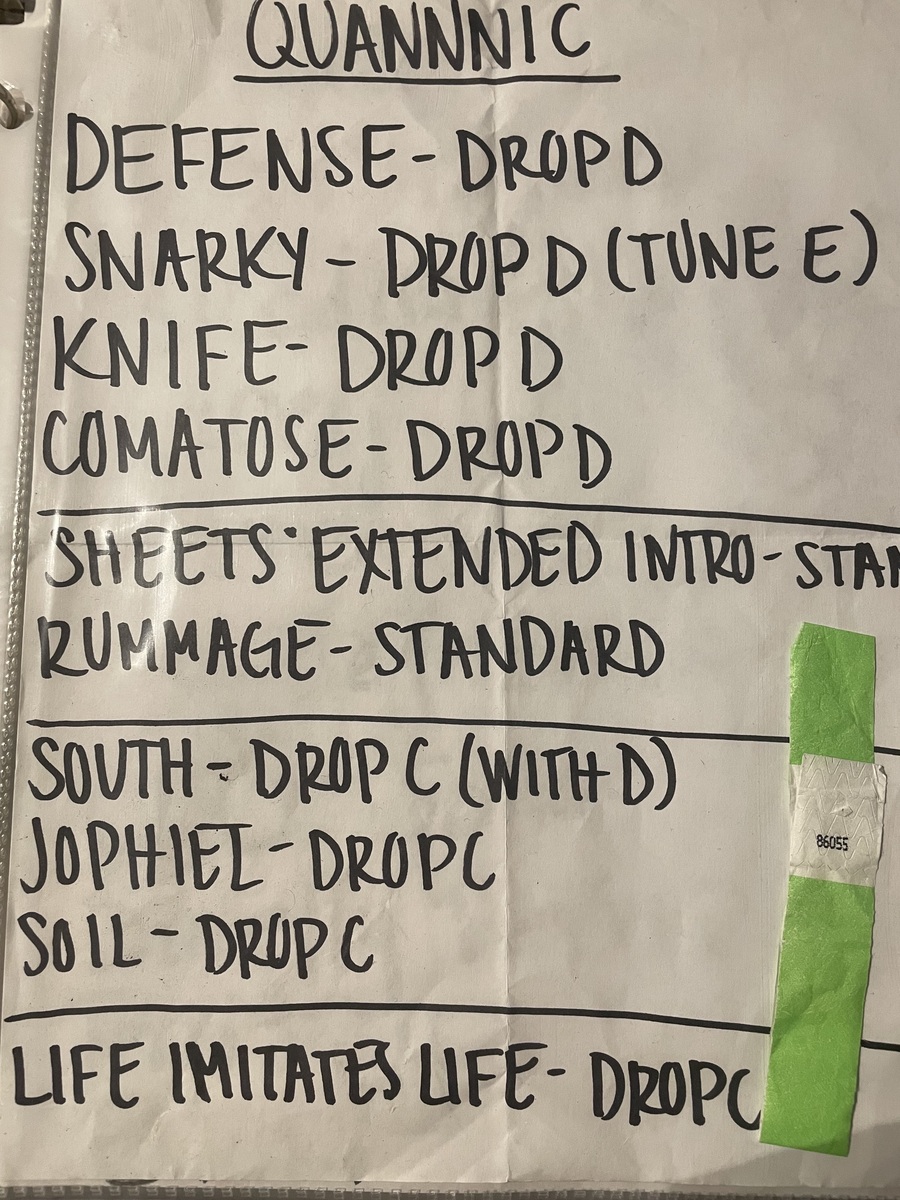 QUANNNIC
DEFENSE - DROP D
SNARKY - DROP D (TUNE E)
KNIFE - DROP D
COMATOSE - DROP D
SHEETS · EXTENDED INTRO - STAN
RUMMAGE - STANDARD
SOUTH - DROP C (WITH D)
JOPHIEL - DROP C
SOIL - DROP C
LIFE IMITATES LIFE - DROP C
86055